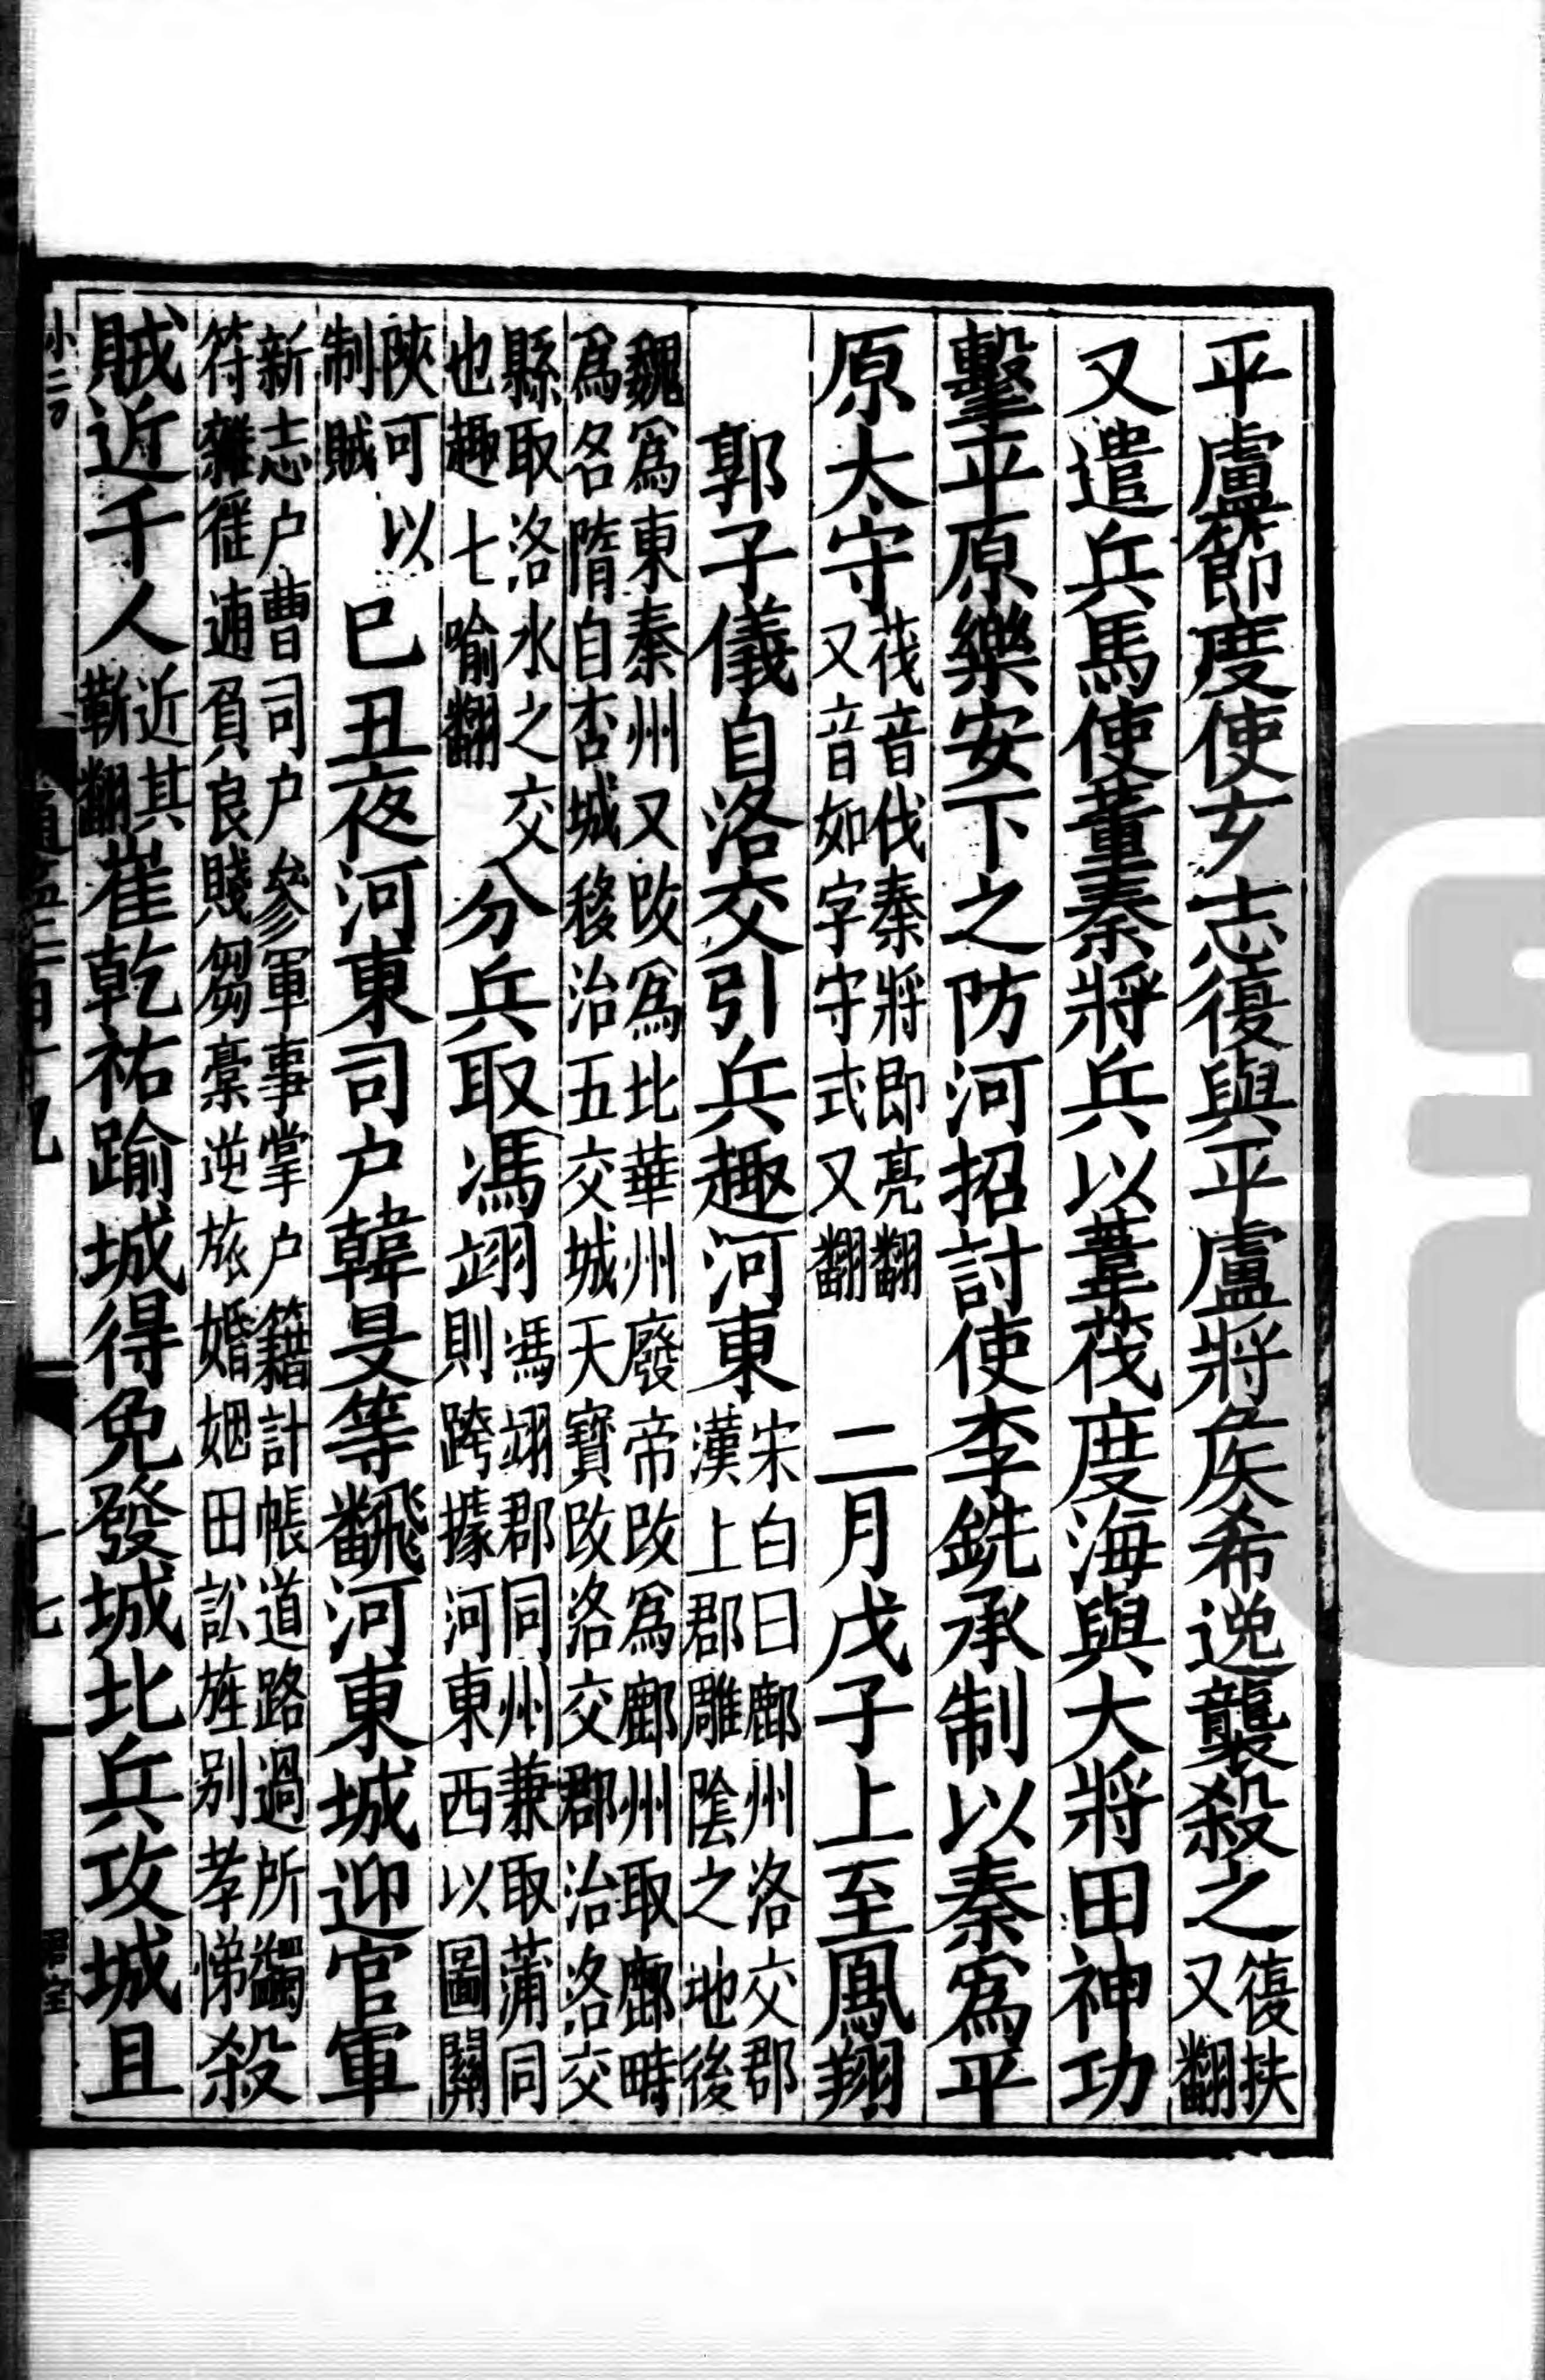 平盧節度使玄志復與平盧將矦希逸襲殺之復扶又翻
又遣兵馬使董秦將兵以葦茷度海與大將田神功
擊平原樂安下之防河招討使李銑承制以秦爲平
原太守茷音伐秦將即亮翻又音如字守式又翻 二月戊子上至鳳翔
郭子儀自洛交引兵趣河東宋白曰鄜州洛交郡漢上郡雕陰之地後
魏爲東秦州又改爲北華州廢帝改爲鄜州取鄜畤爲名隋自杏城移治五交城天寶改洛交郡治洛交
縣取洛水之交也趣七喻翻分兵取馮翊馮翊郡同州兼取蒲同則跨據河東西以圖關
陝可以制賊巳丑夜河東司户韓旻等飜河東城迎官軍
新志户曹司户參軍事掌户籍計帳道路過所蠲符雜徭逋負良賤芻槀逆旅婚姻田訟旌別孝悌殺
賊近千人近其靳翻崔乾祐踰城得免發城北兵攻城且